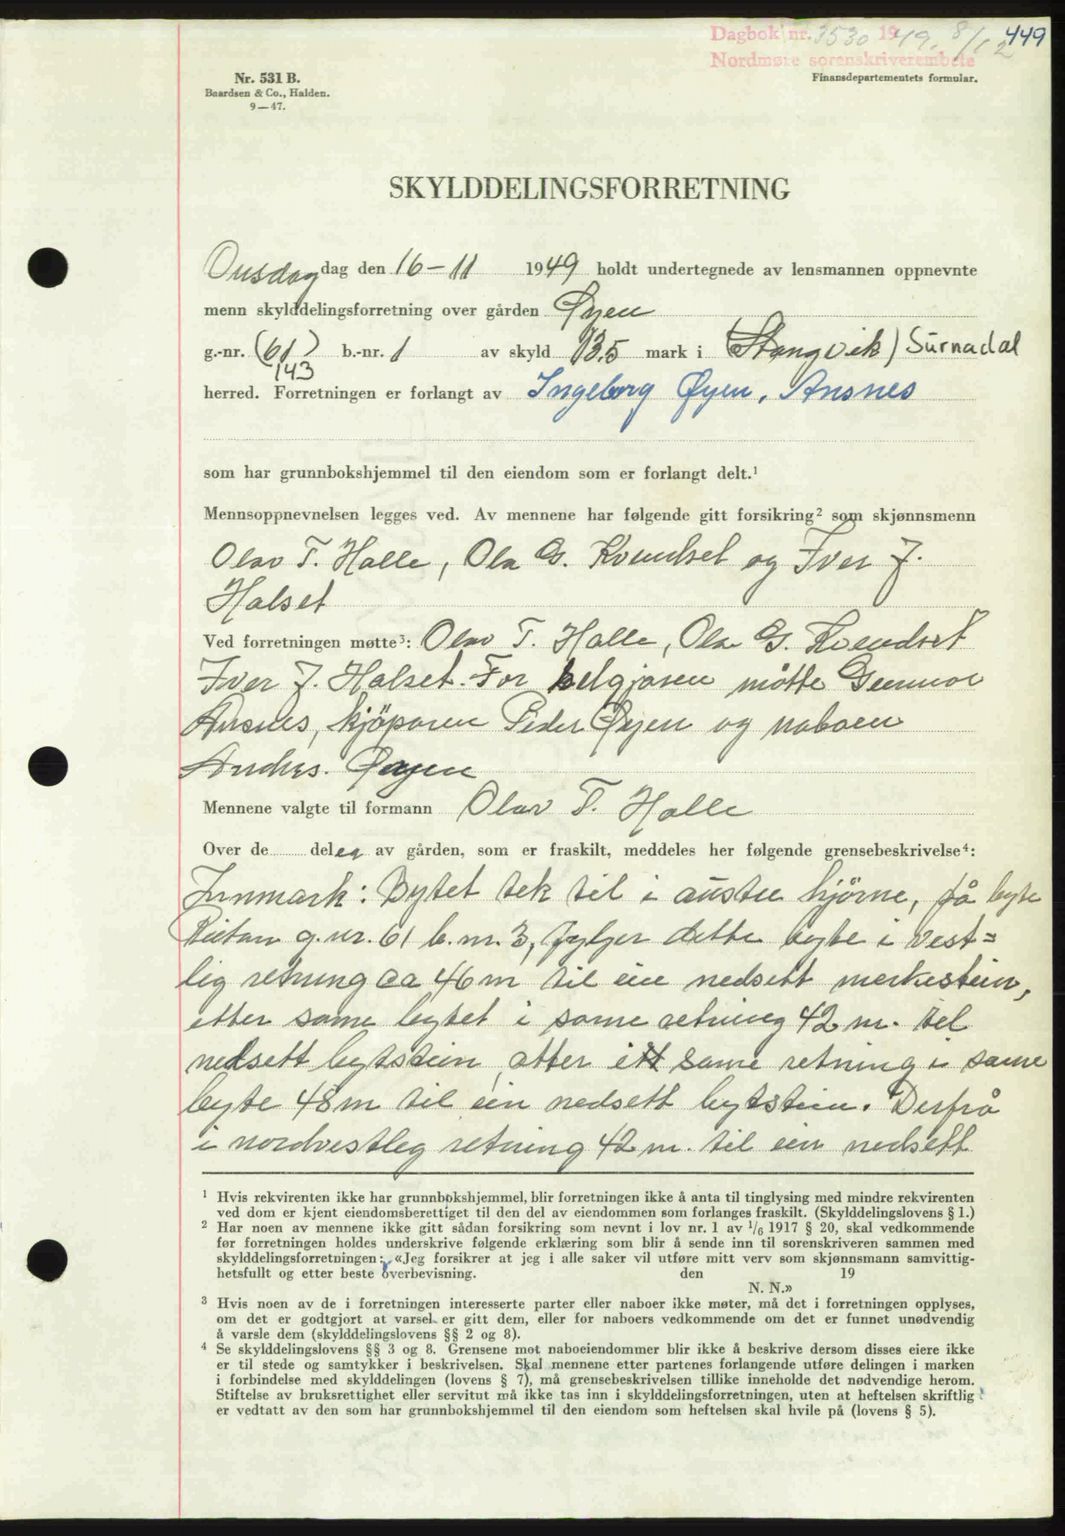 Dagbok nr. 3530 1949. 8/12 449
Nordmøre sorenskriverembete
Nr. 531 B.
Baardsen & Co., Halden.
9—47.
Finansdepartementets formular.
SKYLDDELINGSFORRETNING
Onsdag dag den 16-11 1949 holdt undertegnede av lensmannen oppnevnte
menn skylddelingsforretning over gården Øyen
g.-nr. (61) b.-nr. 1 av skyld 13.5 mark i (Stangvik) Surnadal
143
herred. Forretningen er forlangt av Ingeborg Øyen, Ansnes
som har grunnbokshjemmel til den eiendom som er forlangt delt.¹
Mennsoppnevnelsen legges ved. Av mennene har følgende gitt forsikring² som skjønnsmenn
Olav T. Halle, Ola G. Kvendset og Iver J.
Halset
Ved forretningen møtte³: Olav T. Halle, Ola G. Kvendset
Iver J. Halset. For selgjaren møtte Gunnar
Ansnes, kjöparen Peder Øyen og naboen
Anders Øyen
Mennene valgte til formann Olav T. Halle
Over de ........ delea av gården, som er fraskilt, meddeles her følgende grensebeskrivelse⁴:
Innmark: Bytet tek til i austre hjörne, på byte
g.nr. 61 b.nr. 3, fylgjer dette byte i vest=
lig retning ca 46 m til ein nedsett merkestein,
etter same bytet i same retning 42 m. til
nedsett bytstein, atter i same retning i same
byte 48 m til ein nedsett bytstein. Derfrå
i nordvestleg retning 42 m. til ein nedsett
¹ Hvis rekvirenten ikke har grunnbokshjemmel, blir forretningen ikke å anta til tinglysing med mindre rekvirenten
ved dom er kjent eiendomsberettiget til den del av eiendommen som forlanges fraskilt. (Skylddelingslovens § 1.)
² Har noen av mennene ikke gitt sådan forsikring som nevnt i lov nr. 1 av 1/6 1917 § 20, skal vedkommende
før forretningen holdes underskrive følgende erklæring som blir å sende inn til sorenskriveren sammen med
skylddelingsforretningen: «Jeg forsikrer at jeg i alle saker vil utføre mitt verv som skjønnsmann samvittig-
hetsfullt og etter beste overbevisning. den 19
N. N.»
³ Hvis noen av de i forretningen interesserte parter eller naboer ikke møter, må det i forretningen opplyses,
om det er godtgjort at varsel er gitt dem, eller for naboers vedkommende om det er funnet unødvendig
å varsle dem (skylddelingslovens §§ 2 og 8).
⁴ Se skylddelingslovens §§ 3 og 8. Grensene mot naboeiendommer blir ikke å beskrive dersom disses eiere ikke
er til stede og samtykker i beskrivelsen. Skal mennene etter partenes forlangende utføre delingen i marken
i forbindelse med skylddelingen (lovens § 7), må grensebeskrivelsen tillike inneholde det nødvendige herom.
Stiftelse av bruksrettighet eller servitut må ikke tas inn i skylddelingsforretningen, uten at heftelsen skriftlig
er vedtatt av den som har grunnbokshjemmel til den eiendom som heftelsen skal hvile på (lovens § 5).